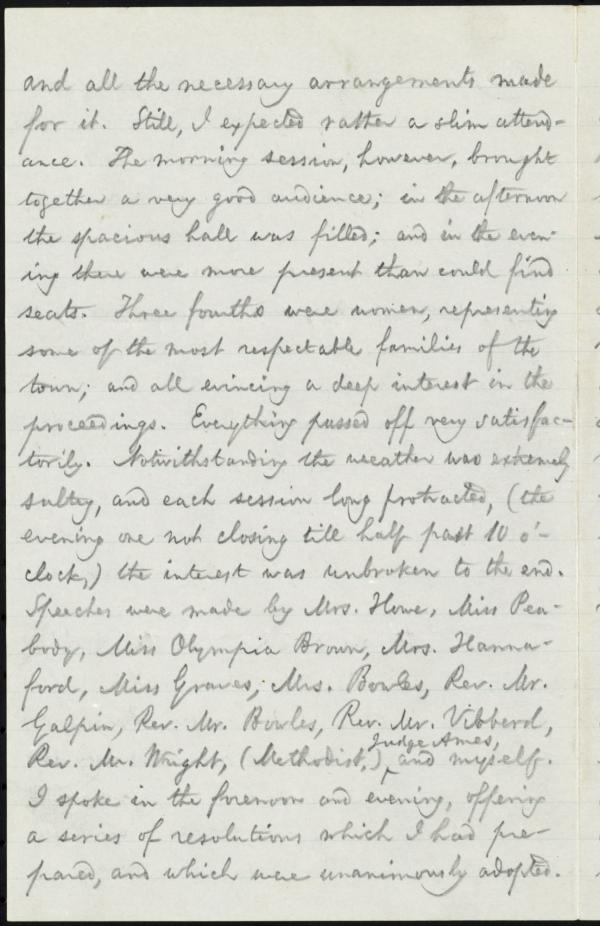 and all the necessary arrangements made
for it. Still, I expected rather a slim attend-
ance. The morning session, however, brought
together a very good audience; in the afternoon
the spacious hall was filled; and in the even-
ing there were more present than could find
seats. Three fourths were women, representing
some of the most respectable families of the
town; and all evincing a deep interest in the
proceedings. Everything passed off very satisfac-
torily. Notwithstanding the weather was extremely
sultry, and each session long protracted, (the
evening one not closing till half past 10 o'-
clock,) the interest was unbroken to the end.
Speeches were made by Mrs. Howe, Miss Pea-
body, Miss Olympia Brown, Mrs. Hanna-
ford, Miss Graves, Mrs. Bowles, Rev. Mr.
Galpin, Rev. Mr. Bowles, Rev. Mr. Vibberd,
Judge Ames,
Rev. Mr. Wright, (Methodist,) ‸ and myself.
I spoke in the forenoon and evening, offering
a series of resolutions which I had pre-
pared, and which were unanimously adopted.